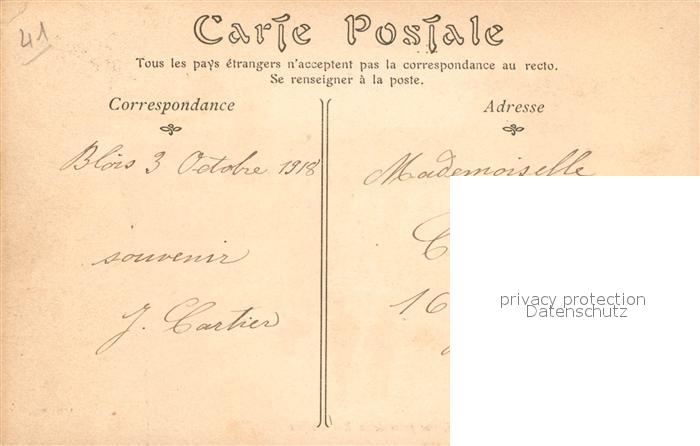 41
Carte Postale
Tous les pays étrangers n'acceptent pas la correspondance au recto.
Se renseigner à la poste.
Correspondance
Adresse
Blois 3 Octobre 1918
souvenir
J. Cartier
Mademoiselle
C
16
privacy protection
Datenschutz